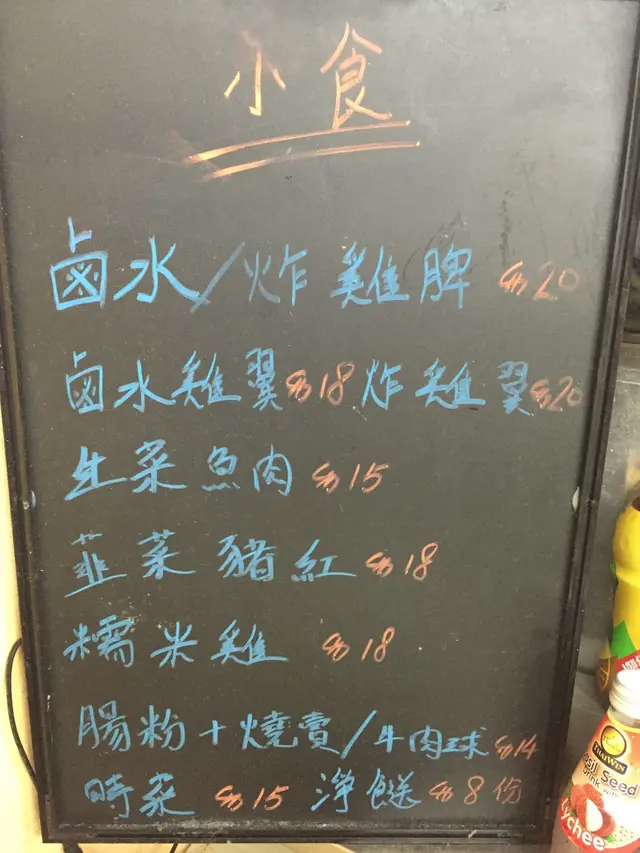 小食
鹵水/炸雞脾 $20
鹵水雞翼 $18 炸雞翼 $20
生菜魚肉 $15
韮菜豬紅 $18
糯米雞 $18
腸粉+燒賣/牛肉球 $14
時菜 $15 淨餸 $8份
TITIWIN
Basil Seed
Drink with
Lychee